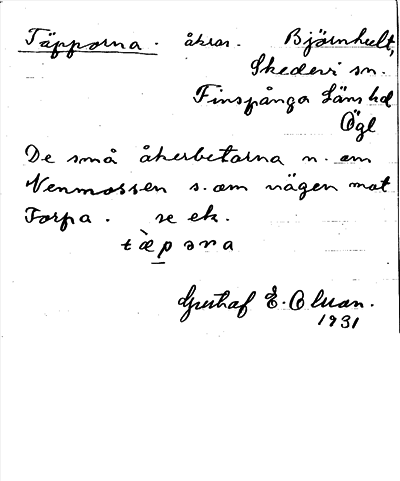 Täpporna. åkrar. Björnhult,
Skedevi sn.
Finspånga Läns hd
Ögl
De små åkerbetarna n. om
Venmossen s. om vägen mot
Torpa. se ek.
tæ̀pọna
Gustaf E. Olsson.
1931